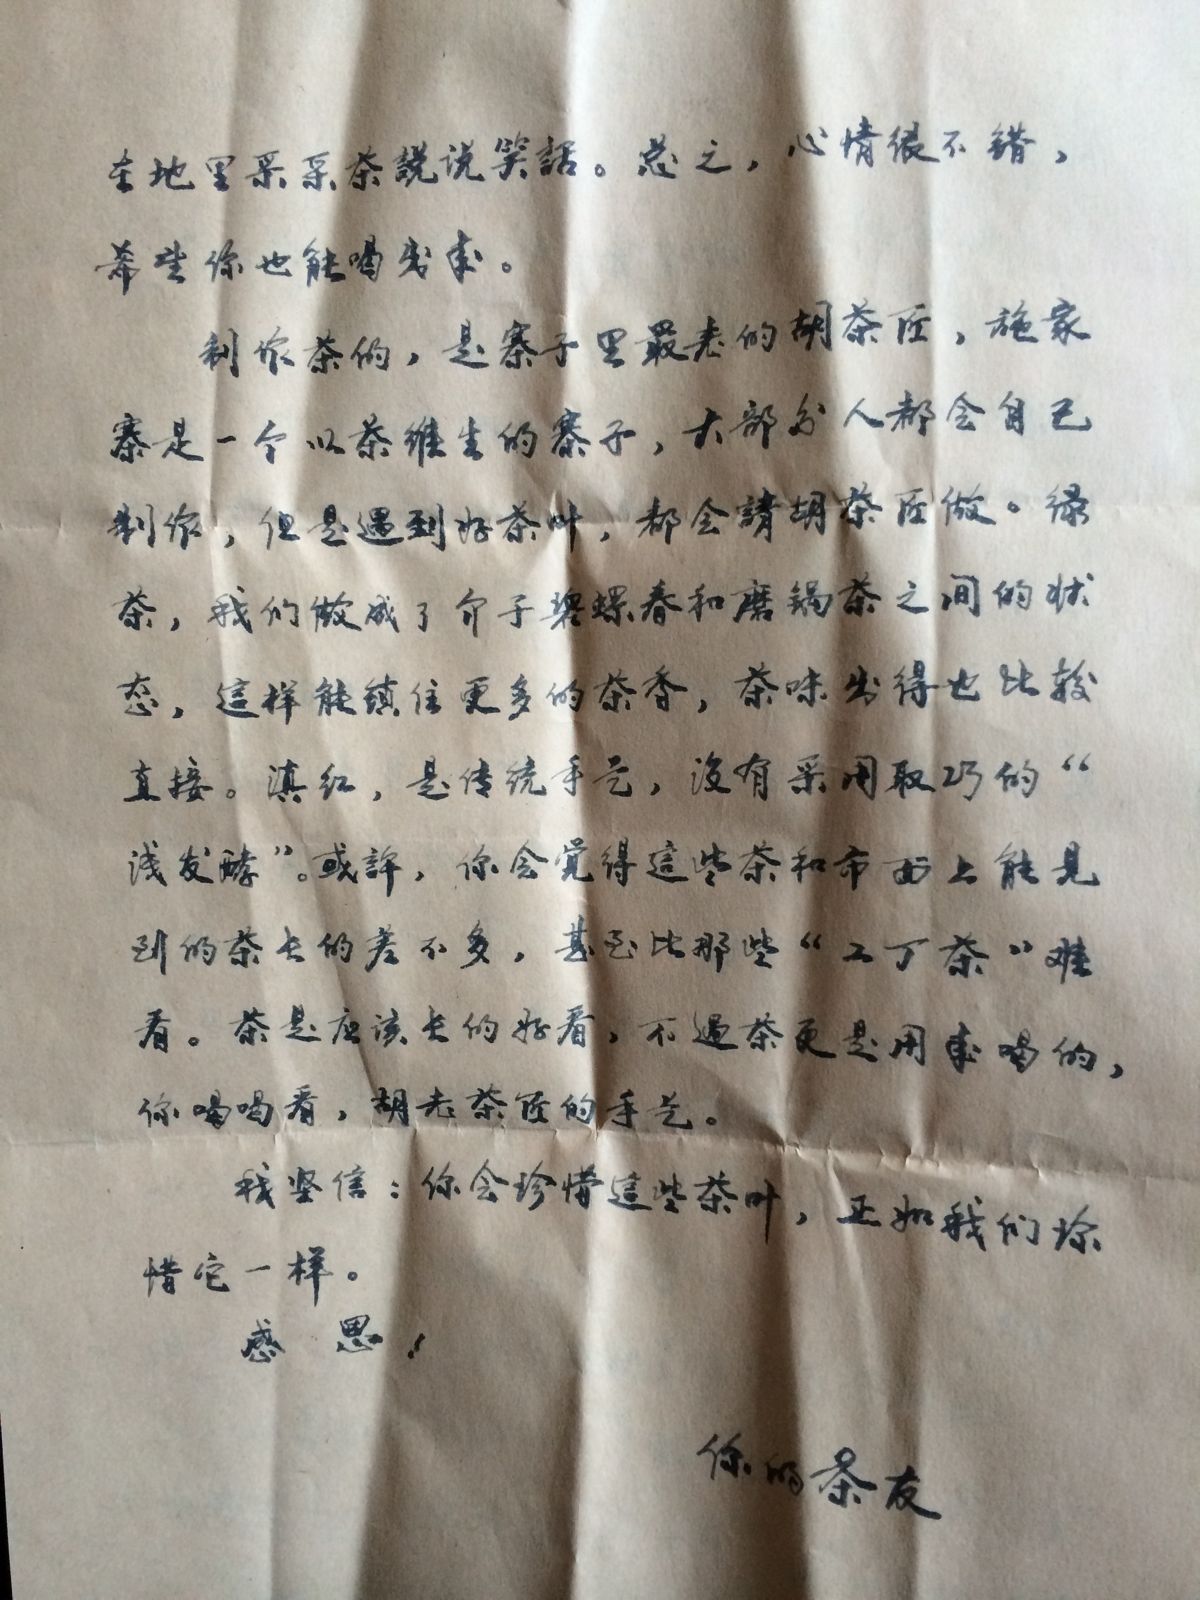 在地里采采茶說说笑話。总之，心情很不错，
希望你也能喝出来。
制作茶的，是寨子里最老的胡茶匠，施家
寨是一个以茶维生的寨子，大部分人都会自己
制作，但是遇到好茶叶，都会請胡茶匠做。绿
茶，我们做成了介于碧螺春和磨锅茶之间的状
态，這样能镇住更多的茶香，茶味出得也比较
直接。滇红，是传统手艺，没有采用取巧的“
浅发酵”。或許，你会觉得這些茶和市面上能見
到的茶长的差不多，甚至比那些“工丁茶”难
看。茶是应该长的好看，不過茶更是用来喝的，
你喝喝看，胡老茶匠的手艺。
我坚信：你会珍惜這些茶叶，正如我们珍
惜它一样。
感恩！
你的茶友